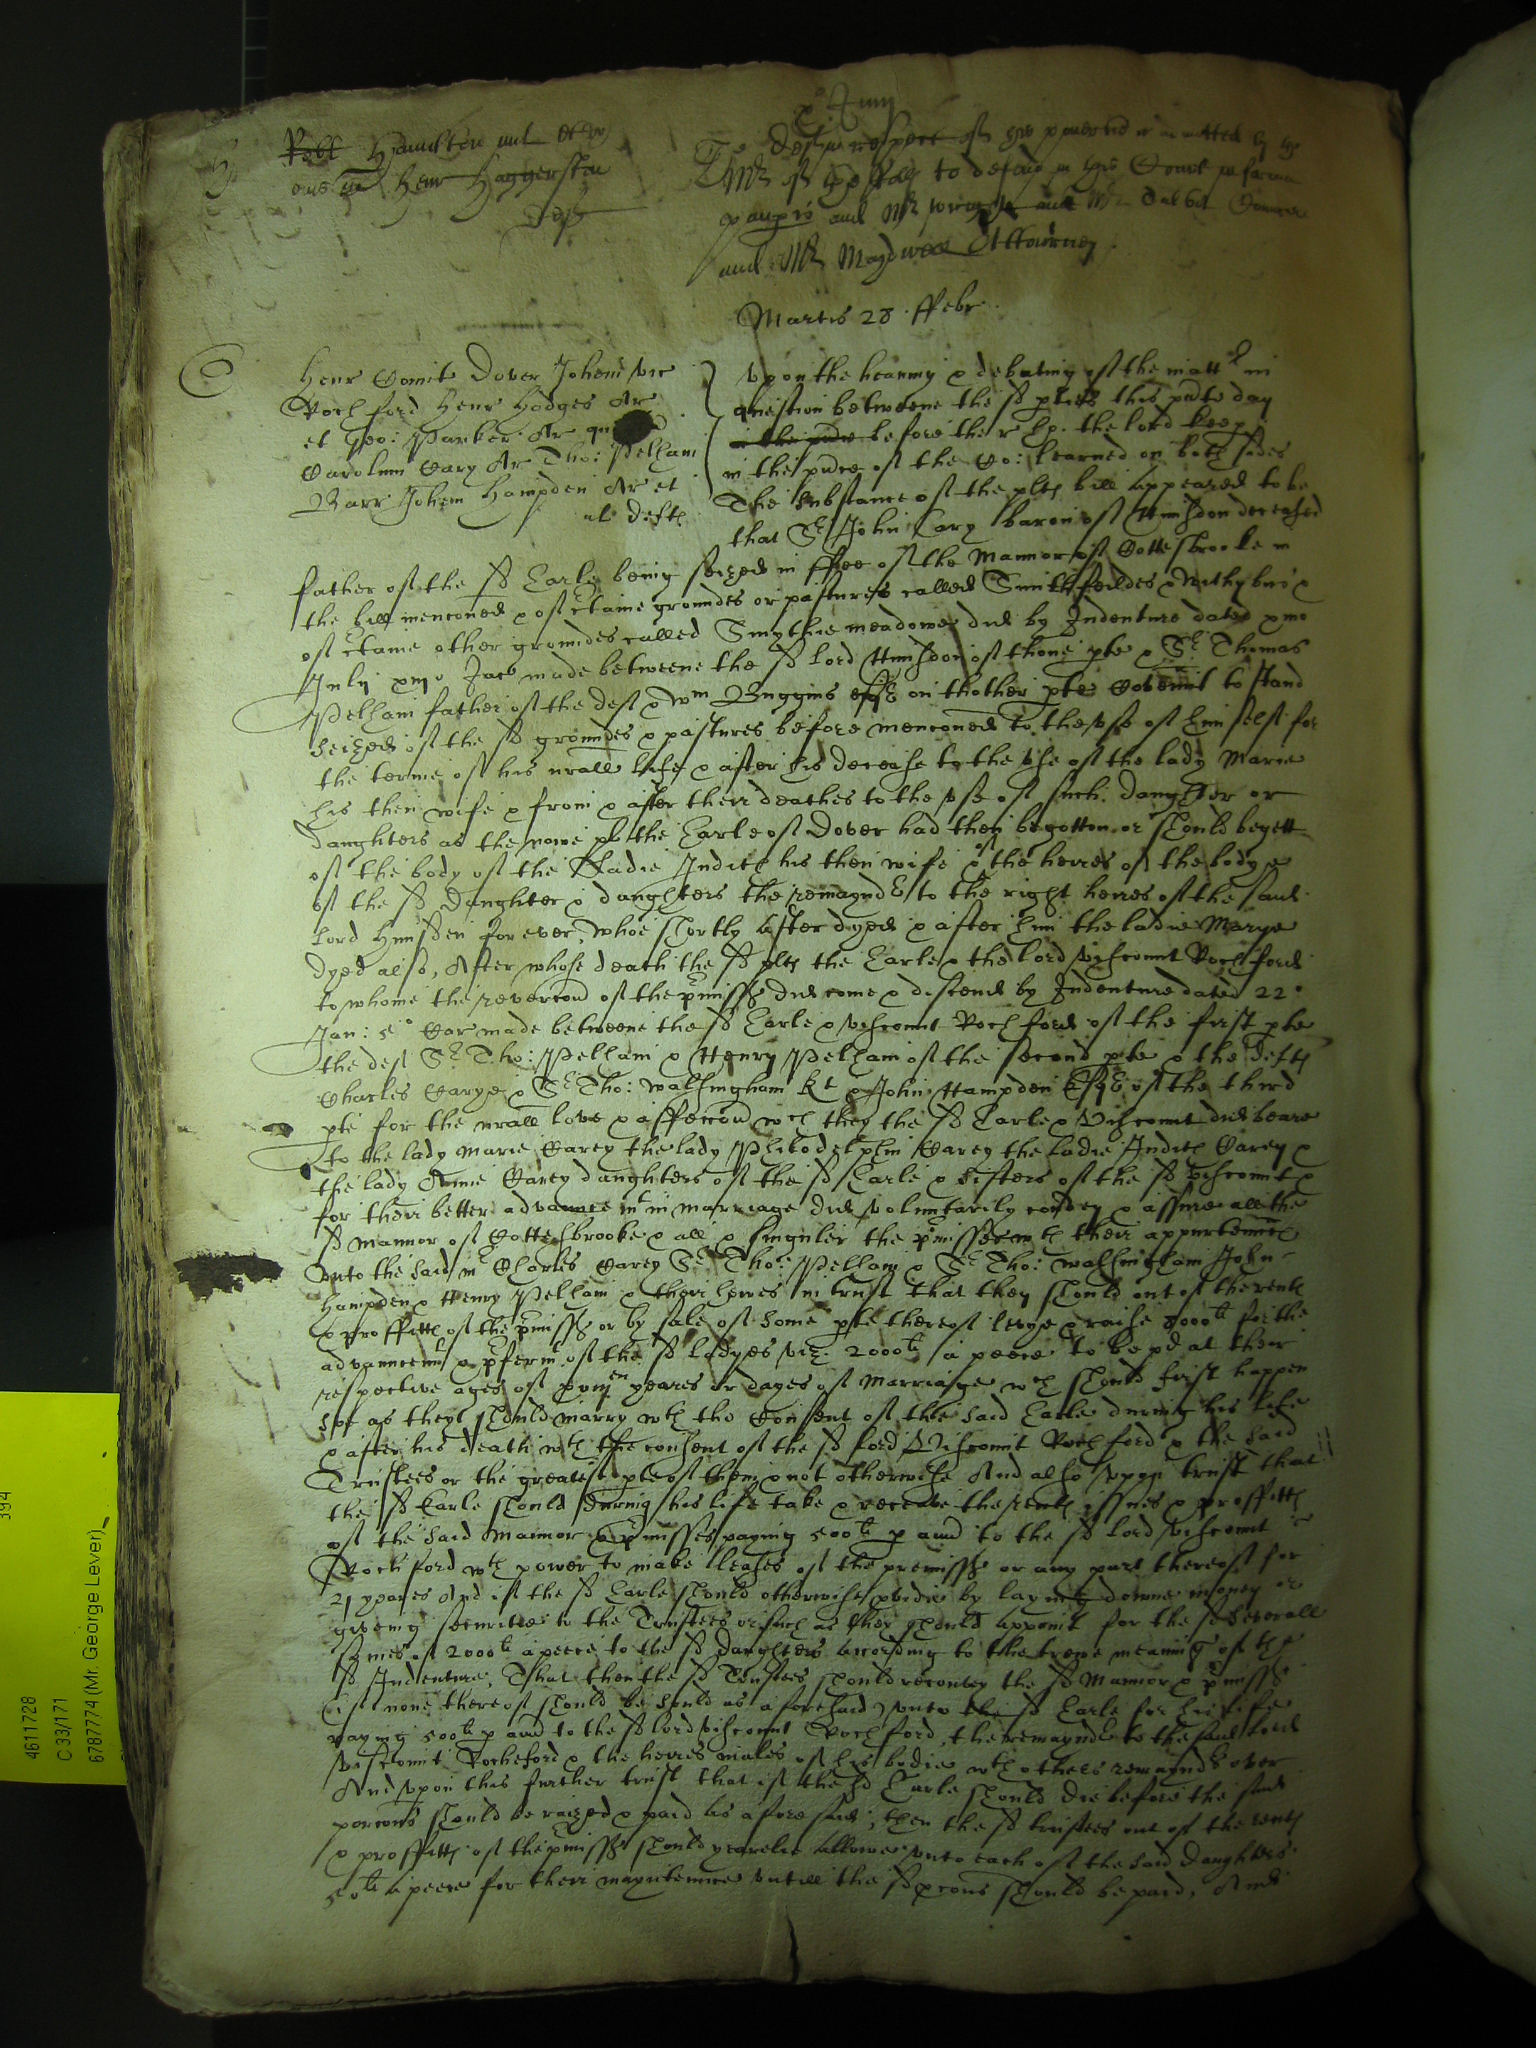 Hamilton
Henr Haggerston
Deft
The deft in respect of his povertie is admitted by the
Mr of the Rolls to defend in this Court in forma
pauperis and Mr and Mr
and Mr Maydwell Attourney
Martis 28 ffebr
Henr Comit Dover Johem vic
Rochford Henr Hodges Ar
et Geo: Parker Ar
Carolum Cary Ar Tho: Pelham
Barr Johem Hampden Ar et
al defts
Upon the hearing & debating of the mattr in
question betweene the sd pties this pnte day
before the r Ho. the lord keep
in the pnce of the Co: learned on both sides
The substance of the plts bill appeared to be
that Sr John Cary baron of Hunsdon deceased
father of the sd Earle being seized in ffee of the Mannor of Cottesbrooke in
the bill menconed & of ctaine groundes or pastures called Smithfeildes &
of ctaine other groundes called Smythie meadowes did by Indenture dated xmo
July Jac made betweene the sd lord Hunsdon of thone pte & Sr Thomas
Pelham father of the deft & Wm Buggins Esqr on thother pte Covent to stand
seized of the sd groundes & pastures before menconed to the use of himself for
the terme of his nrall life & after his decease to the use of the lady Marie
his then wife & from & after their deathes to the use of such daughter or
daughters as the nowe plt the Earle of Dover had then begotten or should begett
of the body of the Ladie Judith his then wife & of the heires of the bodye
of the sd Daughter & daughters the remaynder to the right heires of the said
lord Hunsden for ever, Whoe shortly after dyed & after him the ladie Marye
dyed also, After whose death the sd plts the Earle & the lord viscount Rochford
to whome the revercon of the pmisss did come & descend by Indenture dated 22o
Jan: 5o Car made betweene the sd Earle & viscount Rochford of the first pte
the deft Sr Tho: Pelham & Henry Pelham of the second pte & the defts
Charles Carye & Sr Tho: Walsingham Kt & John Hampden Esqr of the third
pte for the nrall love & affeccon wch they the sd Earle & Viscount did beare
to the lady Marie Carey the lady Philodelphia Carey the ladie Judith Carey &
the lady Anne Carey daughters of the sd Earle & sisters of the sd Viscount &
for their better advancemt in marriage did voluntarily convey & assure all the
sd Mannor of Cottesbrooke & all & singuler the pmisses wth their appurtenncs
unto the said mr Charles Carey Sr Tho: Pelham & Sr Tho: Walsingham John
Hampden & Henry Pelham & their heires in trust that they should out of the rents
& proffitts of the pmisss or by sale of some pte thereof levye & raise 8000li for the
advauncemt & pferrmt of the sd ladyes viz. 2000li a peece to be pd at their
respective ages of xviijen yeares or dayes of Marriage wch should first happen
soe as they should marry wth the Consent of the said Earle during his life
& after his death wth the consent of the sd lord Viscount Rochford & the said
Trustees or the greatest pte of them & not otherwise And also upon trust that
the sd Earle should during his life take & receive the rents issues & proffitts
of the said Mannor & pmisses paying 500li p ann to the sd lord viscount
Rochford wth power to make leases of the premisss or any part thereof for
21 yeares And if the sd Earle should otherwise pvide by laying downe money or
giveing securitie to the Trustees or such as they should appoint for the sd severall
sumes of 2000li apeece to the sd daughters according to the trewe meaning of the
sd Indenture, That then the sd Trustees should reconvey the sd Mannor & pmisss
(if none thereof should be sould as aforesaid) unto the sd Earle for his life
paying 500li p ann to the sd lord viscount Rochford, the remayndr to the said lord
Viscount Rocheford & the heires males of his bodie wth others remayndrs over
And upon this further trust that if the sd Earle should die before the said
porcons should be raized & paid as aforesaid, then the sd trustees out of the rents
& proffitts of the pmisss should yearelie allowe unto each of the said daughters
50li apeece for their mayntennce untill the sd porcons should be paid, And
4611728
C 33/171
6787774 (Mr. George Lever)
394